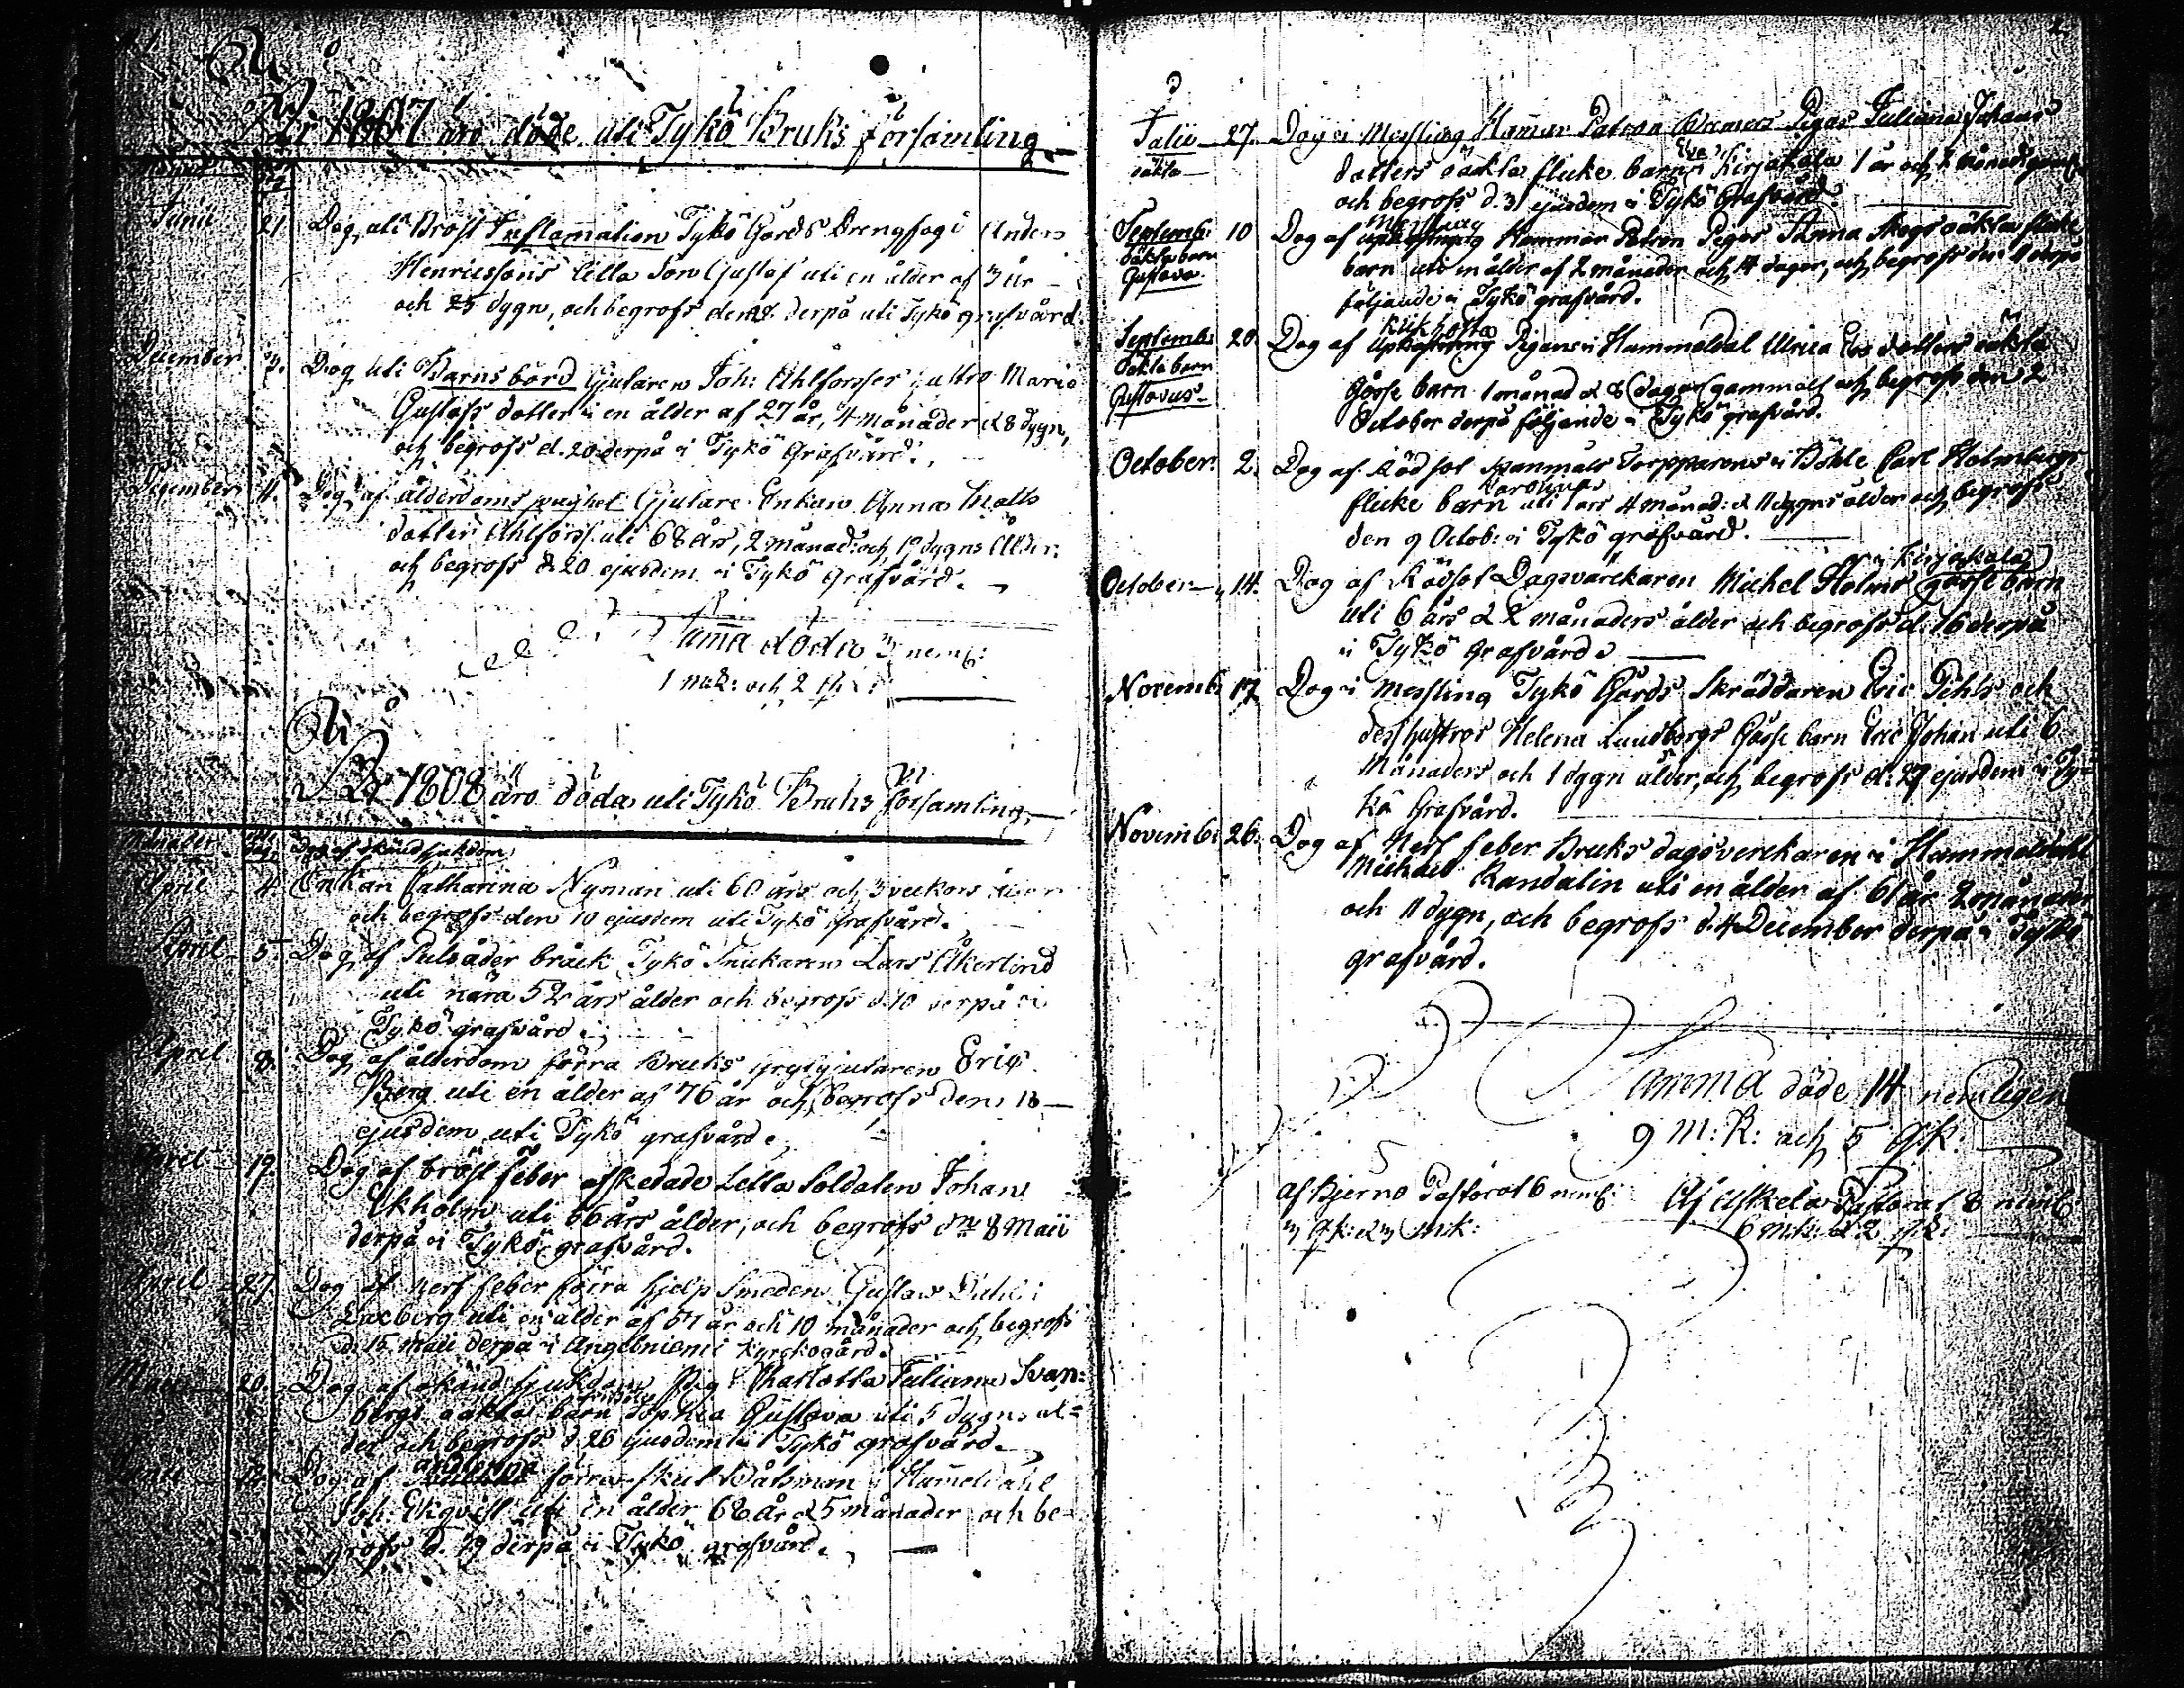 År 1807 äro döde uti Tykö Bruks församling.
Junii 21 Dog uti Bröst Inflamation Tykö Gårds Drengfogd Anders
Henricssons lilla Son Gustaf uti en ålder af 3 år
och 25 dygn, och begrofs den 28 derpå uti Tykö grafvård.
December 9. Dog uti Barnsbörd Gjutaren Joh: Ahlforsses hustro Maria
Gustafs dotter i en ålder af 27 år, 4 månader & 8 dygn,
och begrofs d. 20 derpå i Tykö Grafvård.
December 11. Dog af ålderdoms svaghet Gjutare Enkan Anna Matts
dotter Ahlforss uti 68 års, 2 månad: och 19 dygns Ålder.
och begrofs d. 20 ejusdem i Tykö Grafvård.
Summa döda 3 neml:
1 mk: och 2 qk:
År 1808 äro döda uti Tykö Bruks församling.
Månader Dog af okänd sjukdom
April 4. Enkan Catharina Nyman uti 60 års och 3 veckors ålder
och begrofs den 10 ejusdem uti Tykö Grafvård.
April 5. Dog af Pulsåder bråck Tykö Snickaren Lars Åkerlind
uti nära 52 års ålder och begrofs d. 10 derpå i
Tykö grafvård.
April 8. Dog af ålderdom förra Bruks grytgjutaren Eric
Berg uti en ålder af 76 år och begrofs den 18
ejusdem uti Tykö grafvård.
April 19. Dog af bröst feber afskedade Lilla Soldaten Johan
Ekholm uti 66 års ålder, och begrofs d. 8 Maii
derpå i Tykö grafvård.
April 27. Dog af nerf feber förra hjelp Smeden Gustaf
Laxberg uti en ålder af 57 år och 10 månader och begrofs
d. 15 Maii derpå i Angelniemi kyrckogård.
Maii 20. Dog af okänd sjukdom Pig: Charlotta Juliana Svan-
bergs oäkta barn Sophia Gustava uti 5 dygns ål-
der och begrofs d. 26 ejusdem i Tykö grafvård.
Junii Dog af förra skut Båtsman i Hammeldahl
Joh: Ekqvist uti en ålder 68 år & 5 månader och be-
grofs d. 19 derpå i Tykö grafvård.
Julii 27. Dog i Messling Hammar Patron Bremers Pigas Juliana Johans
oäkta dotters oäkta flicke barn Eva i Kirjakala 1 år och 2 månad gammal
och begrofs d. 31 ejusdem i Tykö Grafvård.
Messling
Septemb: 10 Dog af Hammar Patron Pigas Anna Skogs oäkta flicke
oäkta barn Gustava barn uti en ålder af 2 månader och 14 dagar, och begrofs den 11 derpå
följande i Tykö grafvård.
Kikhosta
Septemb: 20. Dog af Pigans i Hammeldal Ulrica dotters oäkta
oäkta barn Gustavus gosse barn 1 månad & 8 dagars gammalt och begrofs den 2
October derpå följande i Tykö grafvård.
October: 2. Dog af Rödsot Spanmåls Torpparens i Böhle Carl Holmbergs
Karolina
flicke barn uti 1 års 4 månad: & 11 dygns ålder och begrofs
den 9 Octob: i Tykö grafvård.
i Kirjakala
October 14. Dog af Rödsot Dagsvärckaren Michel Holms gosse barn
uti 6 års & 2 månaders ålder och begrofs d. 16 derpå
i Tykö Grafvård.
Novemb: 17 Dog i messling Tykö Gårds Skräddaren Eric Pihls och
dess hustros Helena Lundbergs Gosse barn Eric Johan uti 6
Månaders och 1 dygn ålder, och begrofs d. 27 ejusdem i Ty-
kö Grafvård.
Novemb: 26. Dog af Nerf feber Bruks dagsverckaren i Hammeldahl
Michael Randalin uti en ålder af 61 år 2 månader
och 11 dygn, och begrofs d. 4 December derpå i Tykö
grafvård.
Summa döde 14 nemligen
9 M:K: och 5 Q:K:
af Bjerno Pastorat 6 neml: Af Uskela Pastorat 8 neml:
3 q.k: & 3 m.k: 6 m.k: & 2 q.k: